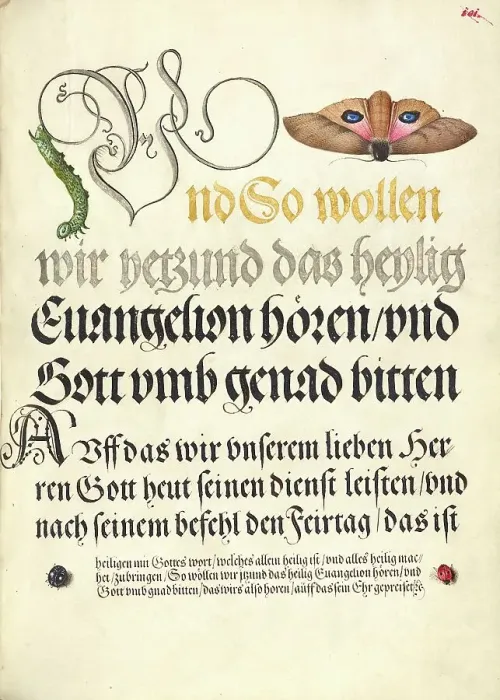 ioi.
Vnd So wollen
wir yetzund das heylig
Euangelion hören/vnd
Gott vmb genad bitten
AVff das wir vnserem lieben Her-
ren Gott heut seinen dienst leisten/vnd
nach seinem befehl den Feirtag/das ist
heiligen mit Gottes wort/welches allein heilig ist/vnd alles heilig mac-
het/zubringen/So wöllen wir jtzund das heilig Euangelion hören/vnd
Gott vmb gnad bitten/das wirs also horen/auff das sein Ehr gepreiset